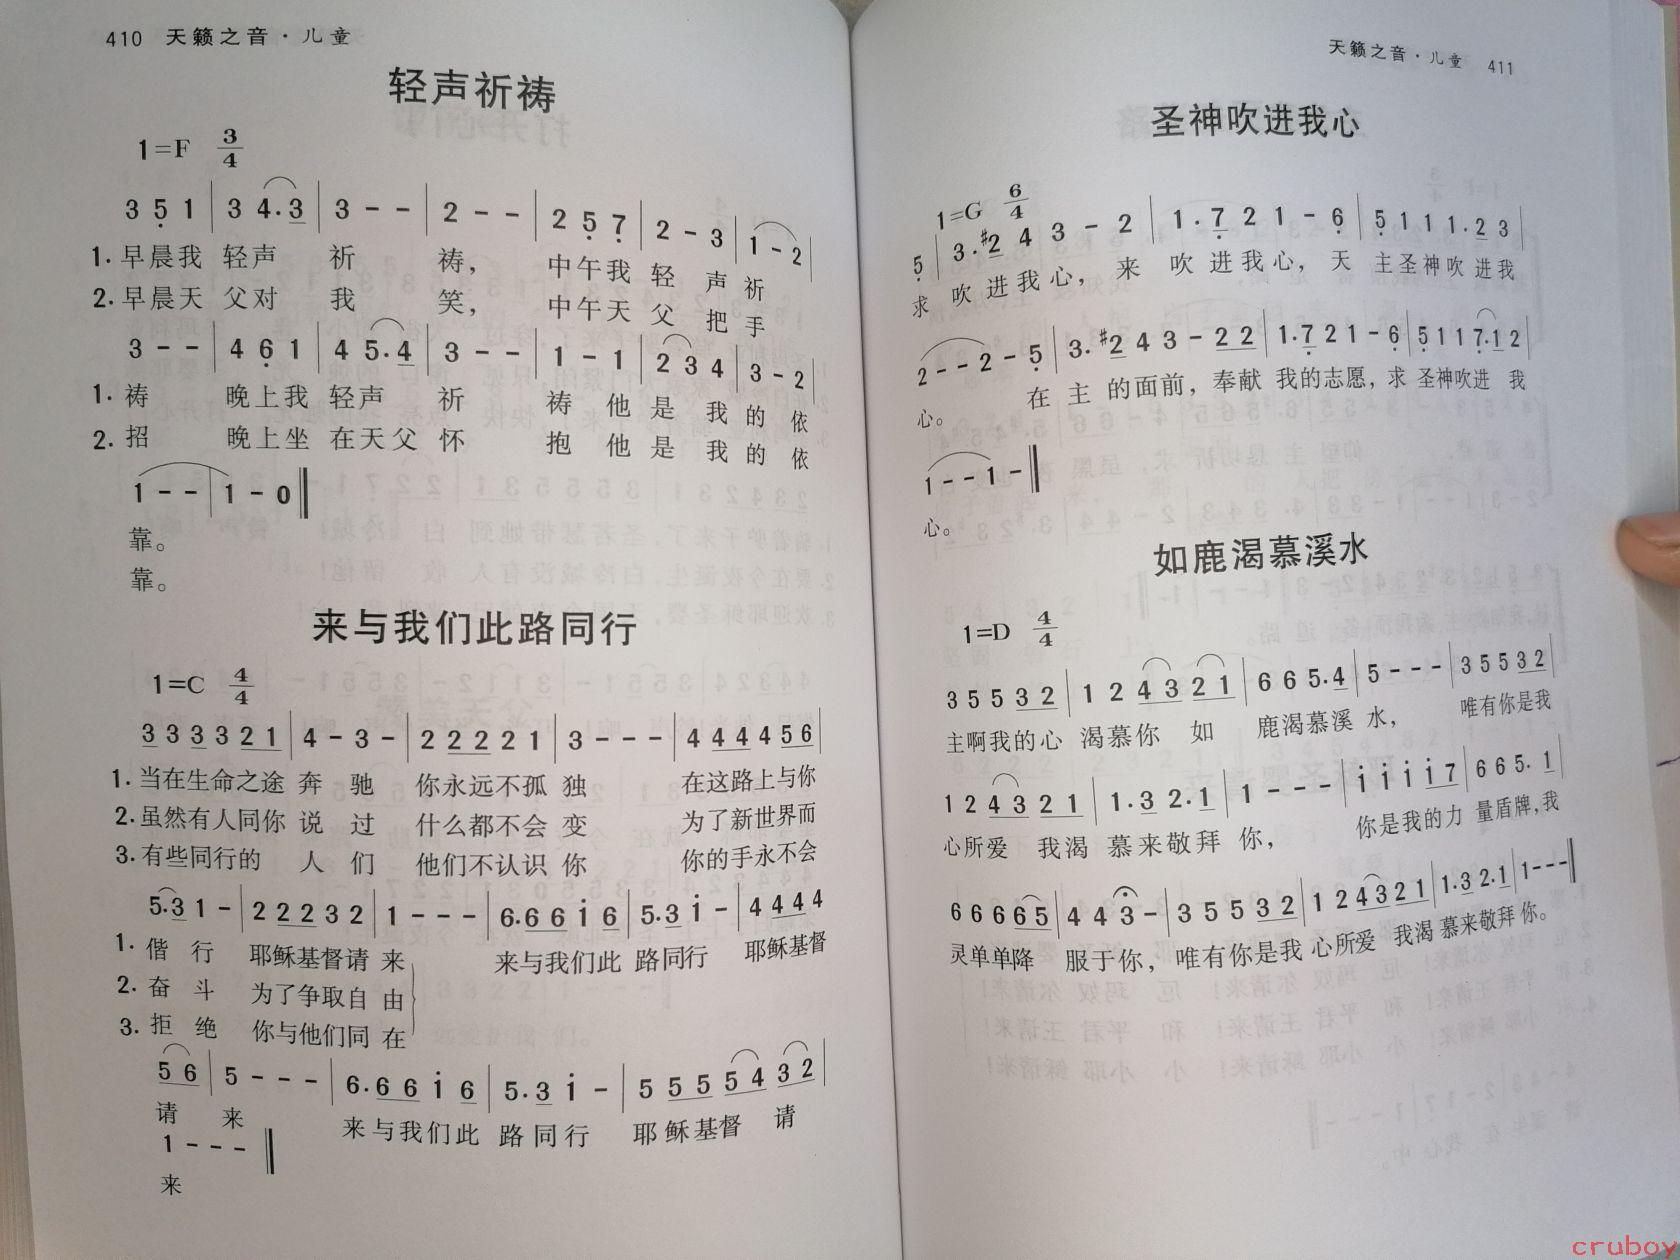 410 天籁之音·儿童
轻声祈祷
1=F 3/4
3 5̣ 1 | 3 4·3 | 3 - - | 2 - - | 2 5̣ 7̣ | 2 - 3 | 1 - 2 |
1. 早晨我 轻声 祈 祷， 中午我 轻 声 祈
2. 早晨天 父对 我 笑， 中午天 父 把 手
3 - - | 4 6̣ 1 | 4 5·4 | 3 - - | 1 - 1 | 2 3 4 | 3 - 2 |
1. 祷 晚上我 轻声 祈 祷 他 是 我 的 依
2. 招 晚上坐 在天父 怀 抱 他 是 我 的 依
1 - - | 1 - 0 ‖
靠。
靠。
来与我们此路同行
1=C 4/4
3 3 3 3 2 1 | 4 - 3 - | 2 2 2 2 2 1 | 3 - - - | 4 4 4 4 5 6 |
1. 当在生命之途 奔 驰 你永远不孤 独 在这路上与你
2. 虽然有人同你 说 过 什么都不会 变 为了新世界而
3. 有些同行的 人 们 他们不认识 你 你的手永不会
5·3 1 - | 2 2 2 3 2 | 1 - - - | 6·6 6 i 6 | 5·3 i - | 4 4 4 4
1. 偕 行 耶稣基督请 来 来与我们此 路同行 耶稣基督
2. 奋 斗 为了争取自 由
3. 拒 绝 你与他们同 在
5 6 | 5 - - - | 6·6 6 i 6 | 5·3 i - | 5 5 5 5 4 3 2 |
请 来 来与我们此 路同行 耶稣基督 请
1 - - - ‖
来
天籁之音·儿童 411
圣神吹进我心
1=G 6/4
5̣ | 3·#2 4 3 - 2 | 1·7̣ 2 1 - 6̣ | 5̣ 1 1 1·2 3 |
求 吹进我心，来 吹进我心，天 主圣神吹进我
2 - - 2 - 5̣ | 3·#2 4 3 - 2 2 | 1·7̣ 2 1 - 6̣ | 5̣ 1 1 7̣·1 2 |
心。 在 主的面前，奉献 我的志愿，求 圣神吹进 我
1 - - 1 - ‖
心。
如鹿渴慕溪水
1=D 4/4
3 5 5 3 2 | 1 2 4 3 2 1 | 6 6 5·4 | 5 - - - | 3 5 5 3 2 |
主啊我的心 渴慕你 如 鹿渴慕溪 水， 唯有你是我
1 2 4 3 2 1 | 1·3 2·1 | 1 - - - | i i i i 7 | 6 6 5·1 |
心所爱 我渴 慕来敬拜 你， 你是我的力 量盾牌，我
6 6 6 6 5 | 4 4 3 - | 3 5 5 3 2 | 1 2 4 3 2 1 | 1·3 2·1 | 1 - - - ‖
灵单单降 服于你，唯有你是我 心所爱 我渴 慕来敬拜 你。
cruboy